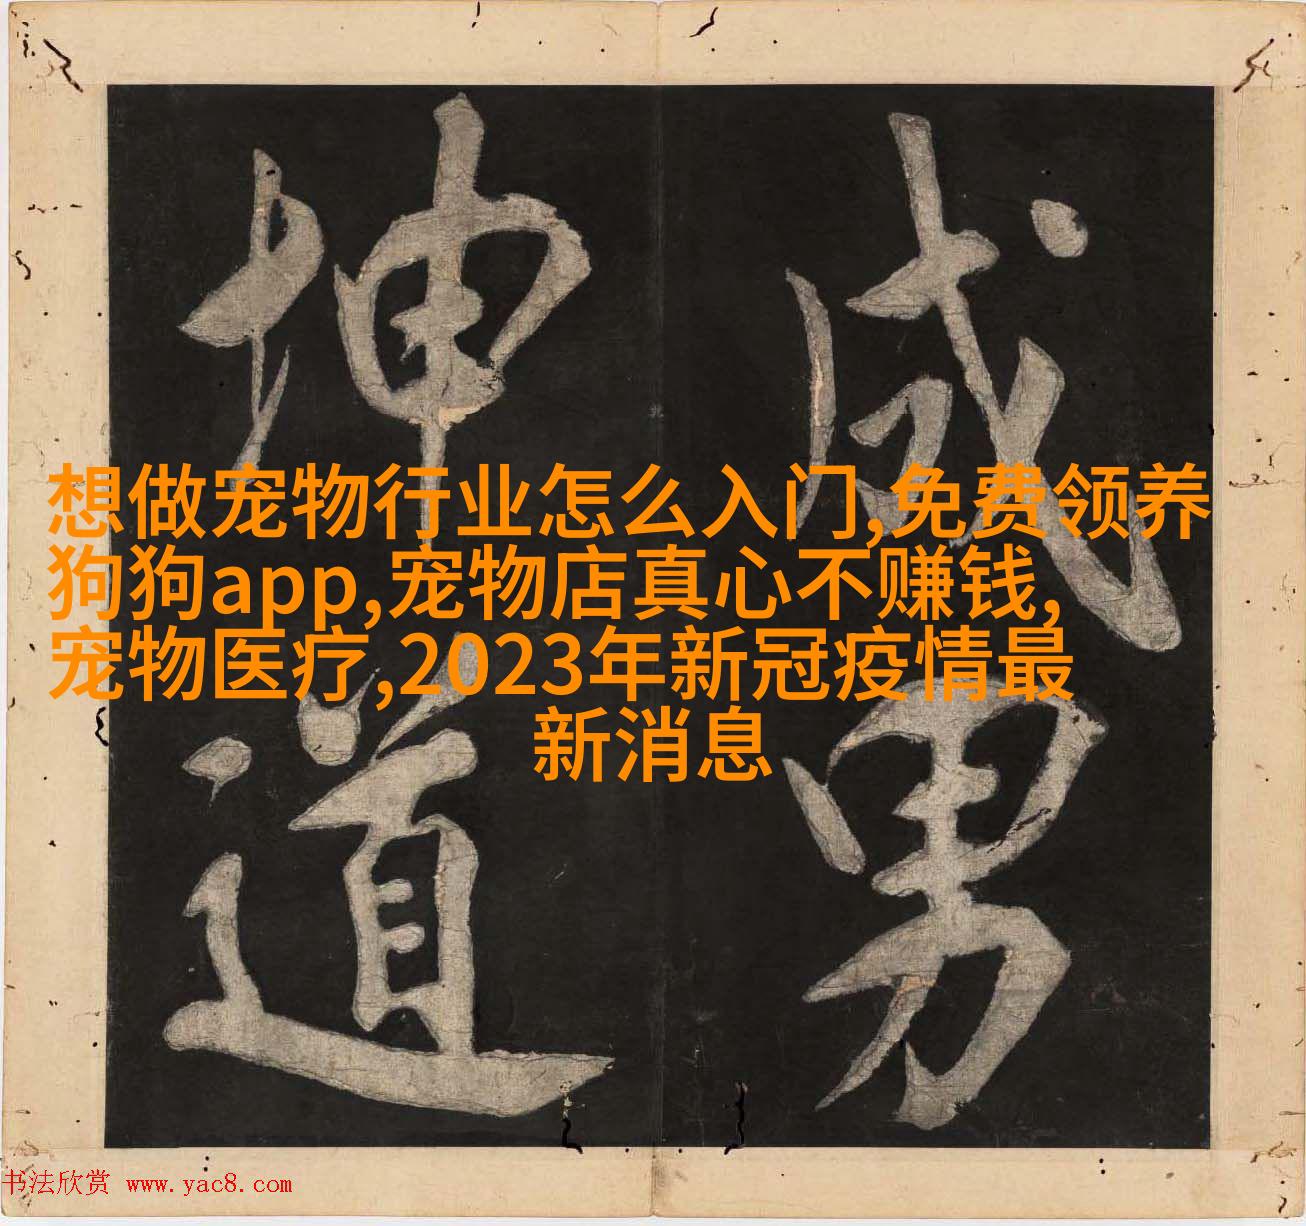 成男
坤道
想做宠物行业怎么入门,免费领养
狗狗app,宠物店真心不赚钱,
宠物医疗,2023年新冠疫情最
新消息
书法欣赏 www.yac8.com